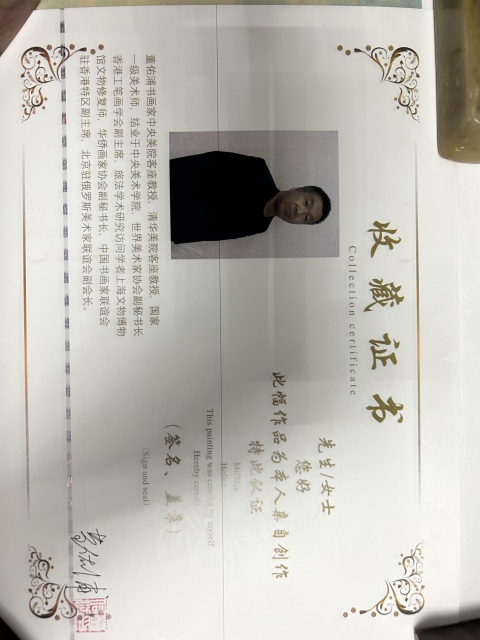 收藏证书
Collection certificate
先生/女士
您好
此幅作品为本人亲自创作
特此认证
This painting was
by myself
Hereby
(签名、盖章)
(Sign and seal)
董佑浦书画家中央美院客座教授、清华美院客座教授、国家
一级美术师，结业于中央美术学院，世界美术家协会副秘书长
香港工笔画学会副主席，旅法学术研究访问学者上海文物博物
馆文物修复师，华侨画家协会副秘书长，中国书画家联谊会
驻香港特区副主席，北京驻俄罗斯美术家联谊会副会长。